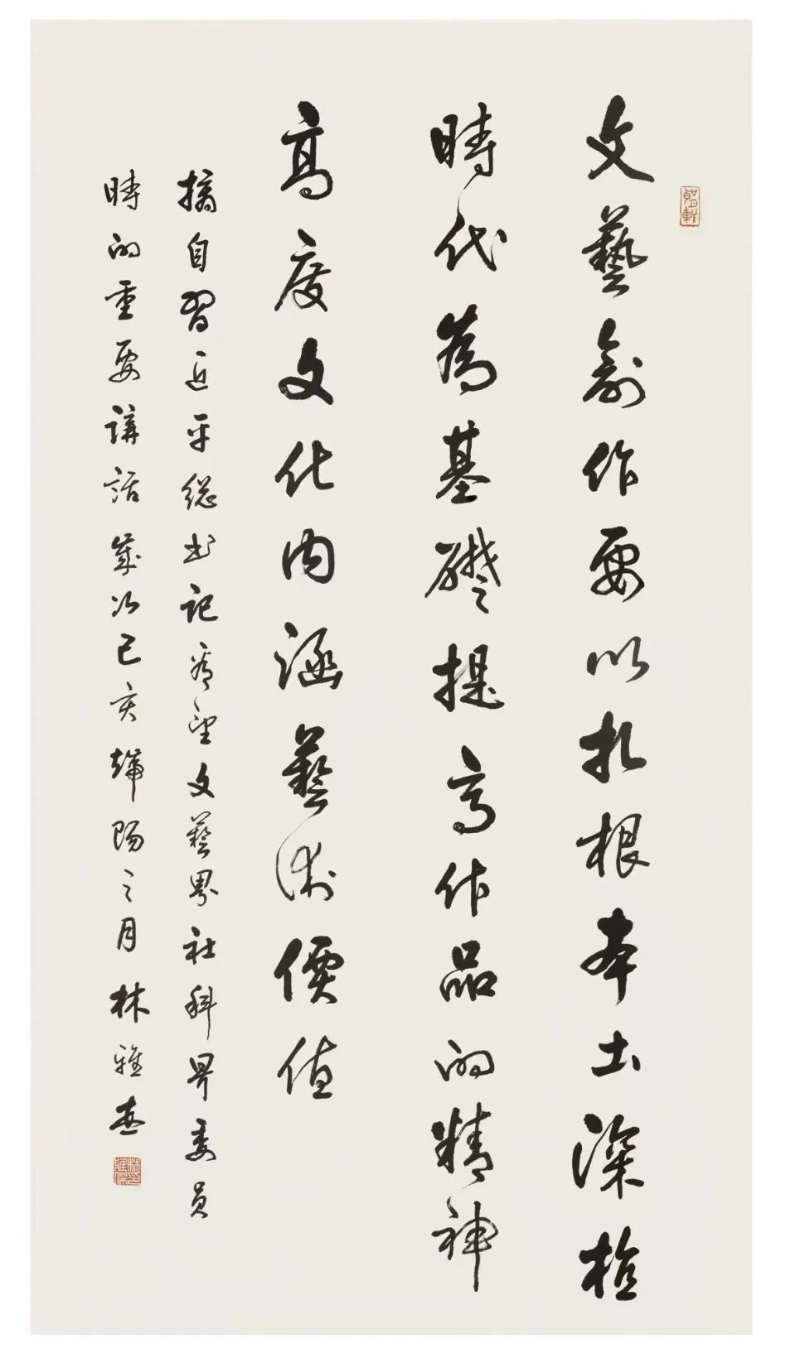 文藝創作要以扎根本土深植
時代為基礎提高作品的精神
高度文化內涵藝術價值
摘自習近平總书記看望文藝界社科界委員
時的重要講話歲次己亥端陽之月林雅杰